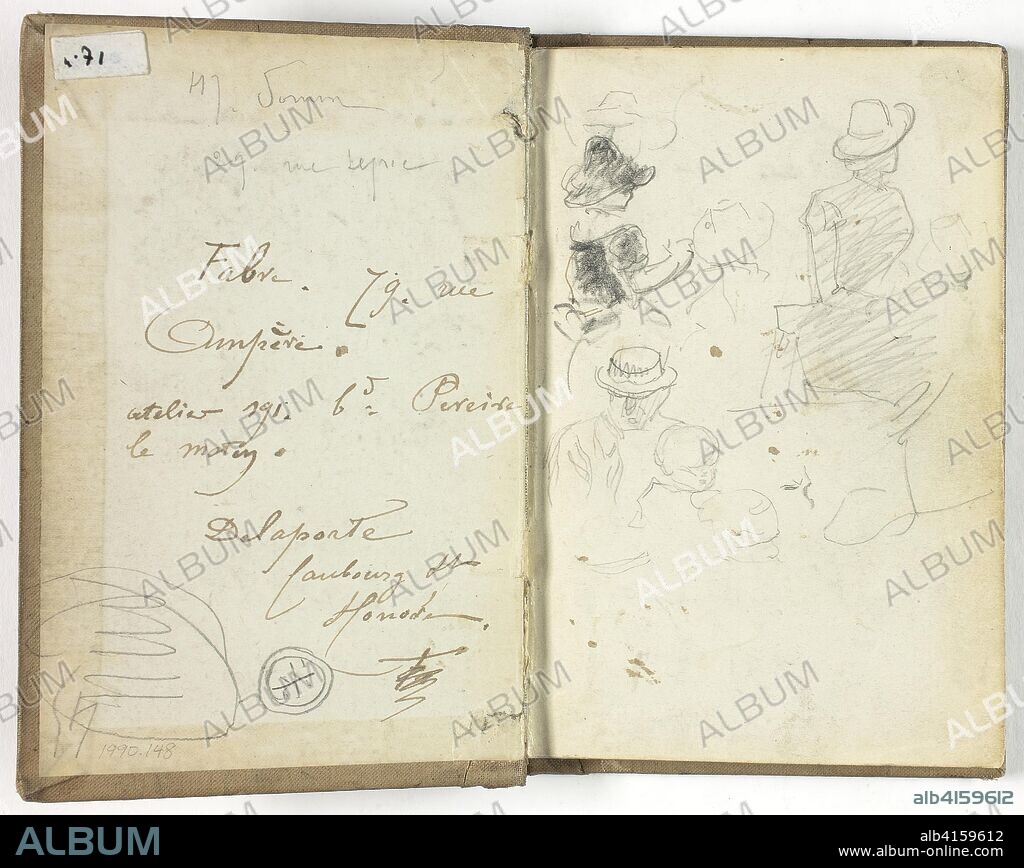 n. 71
H. Somm
29. rue Lepic
Fabre. 79. rue
Ampère.
atelier 191. bd Pereire
le matin.
Delaporte
faubourg St
Honoré.
1990.148
ALBUM
alb4159612
ALBUM
alb4159612
www.album-online.com